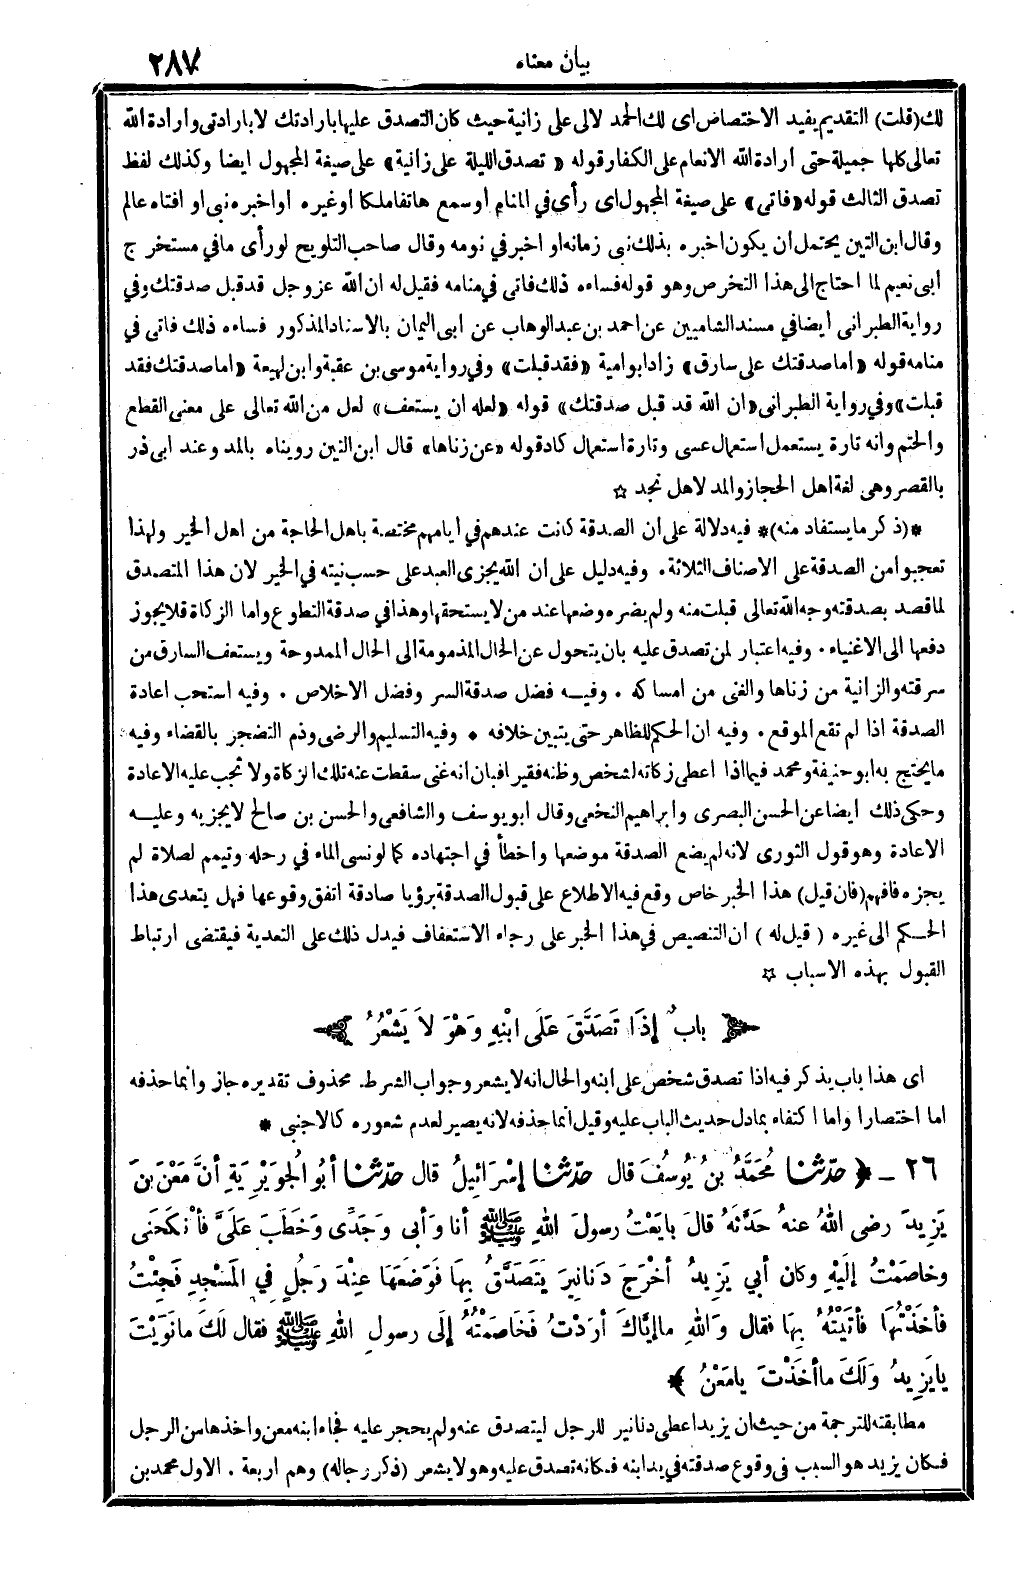 بيان معناه
٢٨٧
لك (قلت) التقديم يفيد الاختصاص اى لك الحمد لالى على زانية حيث كان التصدق عليها بارادتك لا بارادتى وارادة الله
تعالى كلها جميلة حتى ارادة الله الانعام على الكفار قوله «تصدق الليلة على زانية» على صيغة المجهول ايضا وكذلك لفظ
تصدق الثالث قوله «فاتى» على صيغة المجهول اى رأى في المنام او سمع هاتفا ملكا او غيره او اخبره نبى او افتاه عالم
وقال ابن التين يحتمل ان يكون اخبره بذلك نبى زمانه او اخبر في نومه وقال صاحب التلويح لو رأى مافي مستخرج
ابى نعيم لما احتاج الى هذا التخرص وهو قوله فساءه ذلك فاتى في منامه فقيل له ان الله عز وجل قد قبل صدقتك وفي
رواية الطبرانى ايضا في مسند الشاميين عن احمد بن عبد الوهاب عن ابى اليمان بالاسناد المذكور فساءه ذلك فاتى في
منامه قوله «اما صدقتك على سارق» زاد ابو امية «فقد قبلت» وفي رواية موسى بن عقبة وابن لهيعة «اما صدقتك فقد
قبلت» وفي رواية الطبرانى «ان الله قد قبل صدقتك» قوله «لعله ان يستعف» لعل من الله تعالى على معنى القطع
والحتم وانه تارة يستعمل استعمال عسى وتارة استعمال كاد قوله «عن زناها» قال ابن التين رويناه بالمد وعند ابى ذر
بالقصر وهى لغة اهل الحجاز والمد لاهل نجد ☆
*(ذكر ما يستفاد منه)* فيه دلالة على ان الصدقة كانت عندهم في ايامهم مختصة باهل الحاجة من اهل الخير ولهذا
تعجبوا من الصدقة على الاصناف الثلاثة . وفيه دليل على ان الله يجزى العبد على حسب نيته في الخير لان هذا المتصدق
لما قصد بصدقته وجه الله تعالى قبلت منه ولم يضره وضعها عند من لا يستحقها وهذا في صدقة التطوع واما الزكاة فلا يجوز
دفعها الى الاغنياء . وفيه اعتبار لمن تصدق عليه بان يتحول عن الحال المذمومة الى الحال الممدوحة ويستعف السارق من
سرقته والزانية من زناها والغنى من امساكه . وفيه فضل صدقة السر وفضل الاخلاص . وفيه استحب اعادة
الصدقة اذا لم تقع الموقع . وفيه ان الحكم للظاهر حتى يتبين خلافه * وفيه التسليم والرضى وذم التضجر بالقضاء وفيه
ما يحتج به ابو حنيفة ومحمد فيما اذا اعطى زكاته لشخص وظنه فقيرا فبان انه غنى سقطت عنه تلك الزكاة ولا تجب عليه الاعادة
وحكى ذلك ايضا عن الحسن البصرى وابراهيم النخعى وقال ابو يوسف والشافعى والحسن بن صالح لا يجزيه وعليه
الاعادة وهو قول الثورى لانه لم يضع الصدقة موضعها واخطأ في اجتهاده كما لو نسى الماء في رحله وتيمم لصلاة لم
يجزه فافهم (فان قيل) هذا الخبر خاص وقع فيه الاطلاع على قبول الصدقة برؤيا صادقة اتفق وقوعها فهل يتعدى هذا
الحكم الى غيره (قيل له) ان التنصيص في هذا الخبر على رجاء الاستعفاف فيدل ذلك على التعدية فيقتضى ارتباط
القبول بهذه الاسباب ☆
بابٌ إذَا تَصَدَّقَ عَلَى ابْنِهِ وَهْوَ لاَ يَشْعُرُ
اى هذا باب يذكر فيه اذا تصدق شخص على ابنه والحال انه لا يشعر وجواب الشرط محذوف تقديره جاز وانما حذفه
اما اختصارا واما اكتفاء بما دل حديث الباب عليه وقيل انما حذفه لانه يصير لعدم شعوره كالاجنبى *
٢٦ - ﴿ حدّثنا مُحَمَّدُ بنُ يُوسُفَ قال حدّثنا إسْرَائِيلُ قال حدّثنا أبُو الجوَيْرِيَةِ أنَّ مَعْنَ بنَ
يَزِيدَ رضى اللهُ عنهُ حَدَّثَهُ قالَ بايَعْتُ رسولَ اللهِ ﷺ أنا وَأبى وَجَدِّى وَخَطَبَ عَلَىَّ فأنْكَحَنى
وخاصَمْتُ إلَيْهِ وكان أبي يَزِيدُ أخْرَجَ دَنانِيرَ يَتَصَدَّقُ بِهَا فَوَضَعَهَا عِنْدَ رَجُلٍ فِي المَسْجِدِ فَجِئْتُ
فأخَذْتُهَا فأتَيْتُهُ بِهَا فقال وَاللهِ ماإيَّاكَ أرَدْتُ فَخَاصَمْتُهُ إلَى رسولِ اللهِ ﷺ فقال لَكَ مانَوَيْتَ
يايَزِيدُ وَلَكَ ماأخَذْتَ يامَعْنُ ﴾
مطابقته للترجمة من حيث ان يزيد اعطى دنانير للرجل ليتصدق عنه ولم يحجر عليه فجاء ابنه معن واخذها من الرجل
فكان يزيد هو السبب فى وقوع صدقته في يد ابنه فكانه تصدق عليه وهو لا يشعر (ذكر رجاله) وهم اربعة . الاول محمد بن